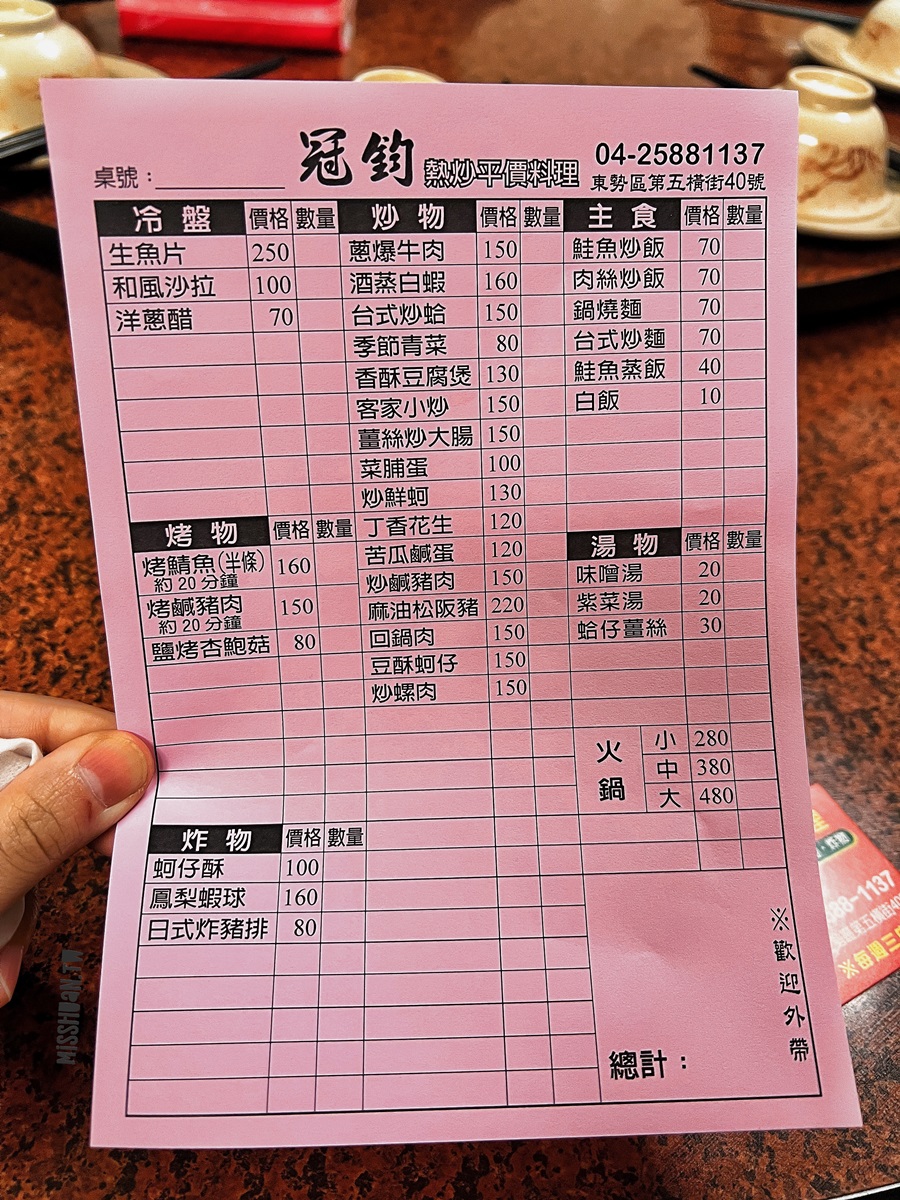 冠鈞 熱炒平價料理
04-25881137
東勢區第五橫街40號
桌號：
冷盤 價格 數量
生魚片 250
和風沙拉 100
洋蔥醋 70
烤物 價格 數量
烤鯖魚(半條) 160
約20分鐘
烤鹹豬肉 150
約20分鐘
鹽烤杏鮑菇 80
炸物 價格 數量
蚵仔酥 100
鳳梨蝦球 160
日式炸豬排 80
炒物 價格 數量
蔥爆牛肉 150
酒蒸白蝦 160
台式炒蛤 150
季節青菜 80
香酥豆腐煲 130
客家小炒 150
薑絲炒大腸 150
菜脯蛋 100
炒鮮蚵 130
丁香花生 120
苦瓜鹹蛋 120
炒鹹豬肉 150
麻油松阪豬 220
回鍋肉 150
豆酥蚵仔 150
炒螺肉 150
主食 價格 數量
鮭魚炒飯 70
肉絲炒飯 70
鍋燒麵 70
台式炒麵 70
鮭魚蒸飯 40
白飯 10
湯物 價格 數量
味噌湯 20
紫菜湯 20
蛤仔薑絲 30
火鍋 小 280
中 380
大 480
※歡迎外帶
總計：
88-1137
※每週三
MISSHUAN.TW